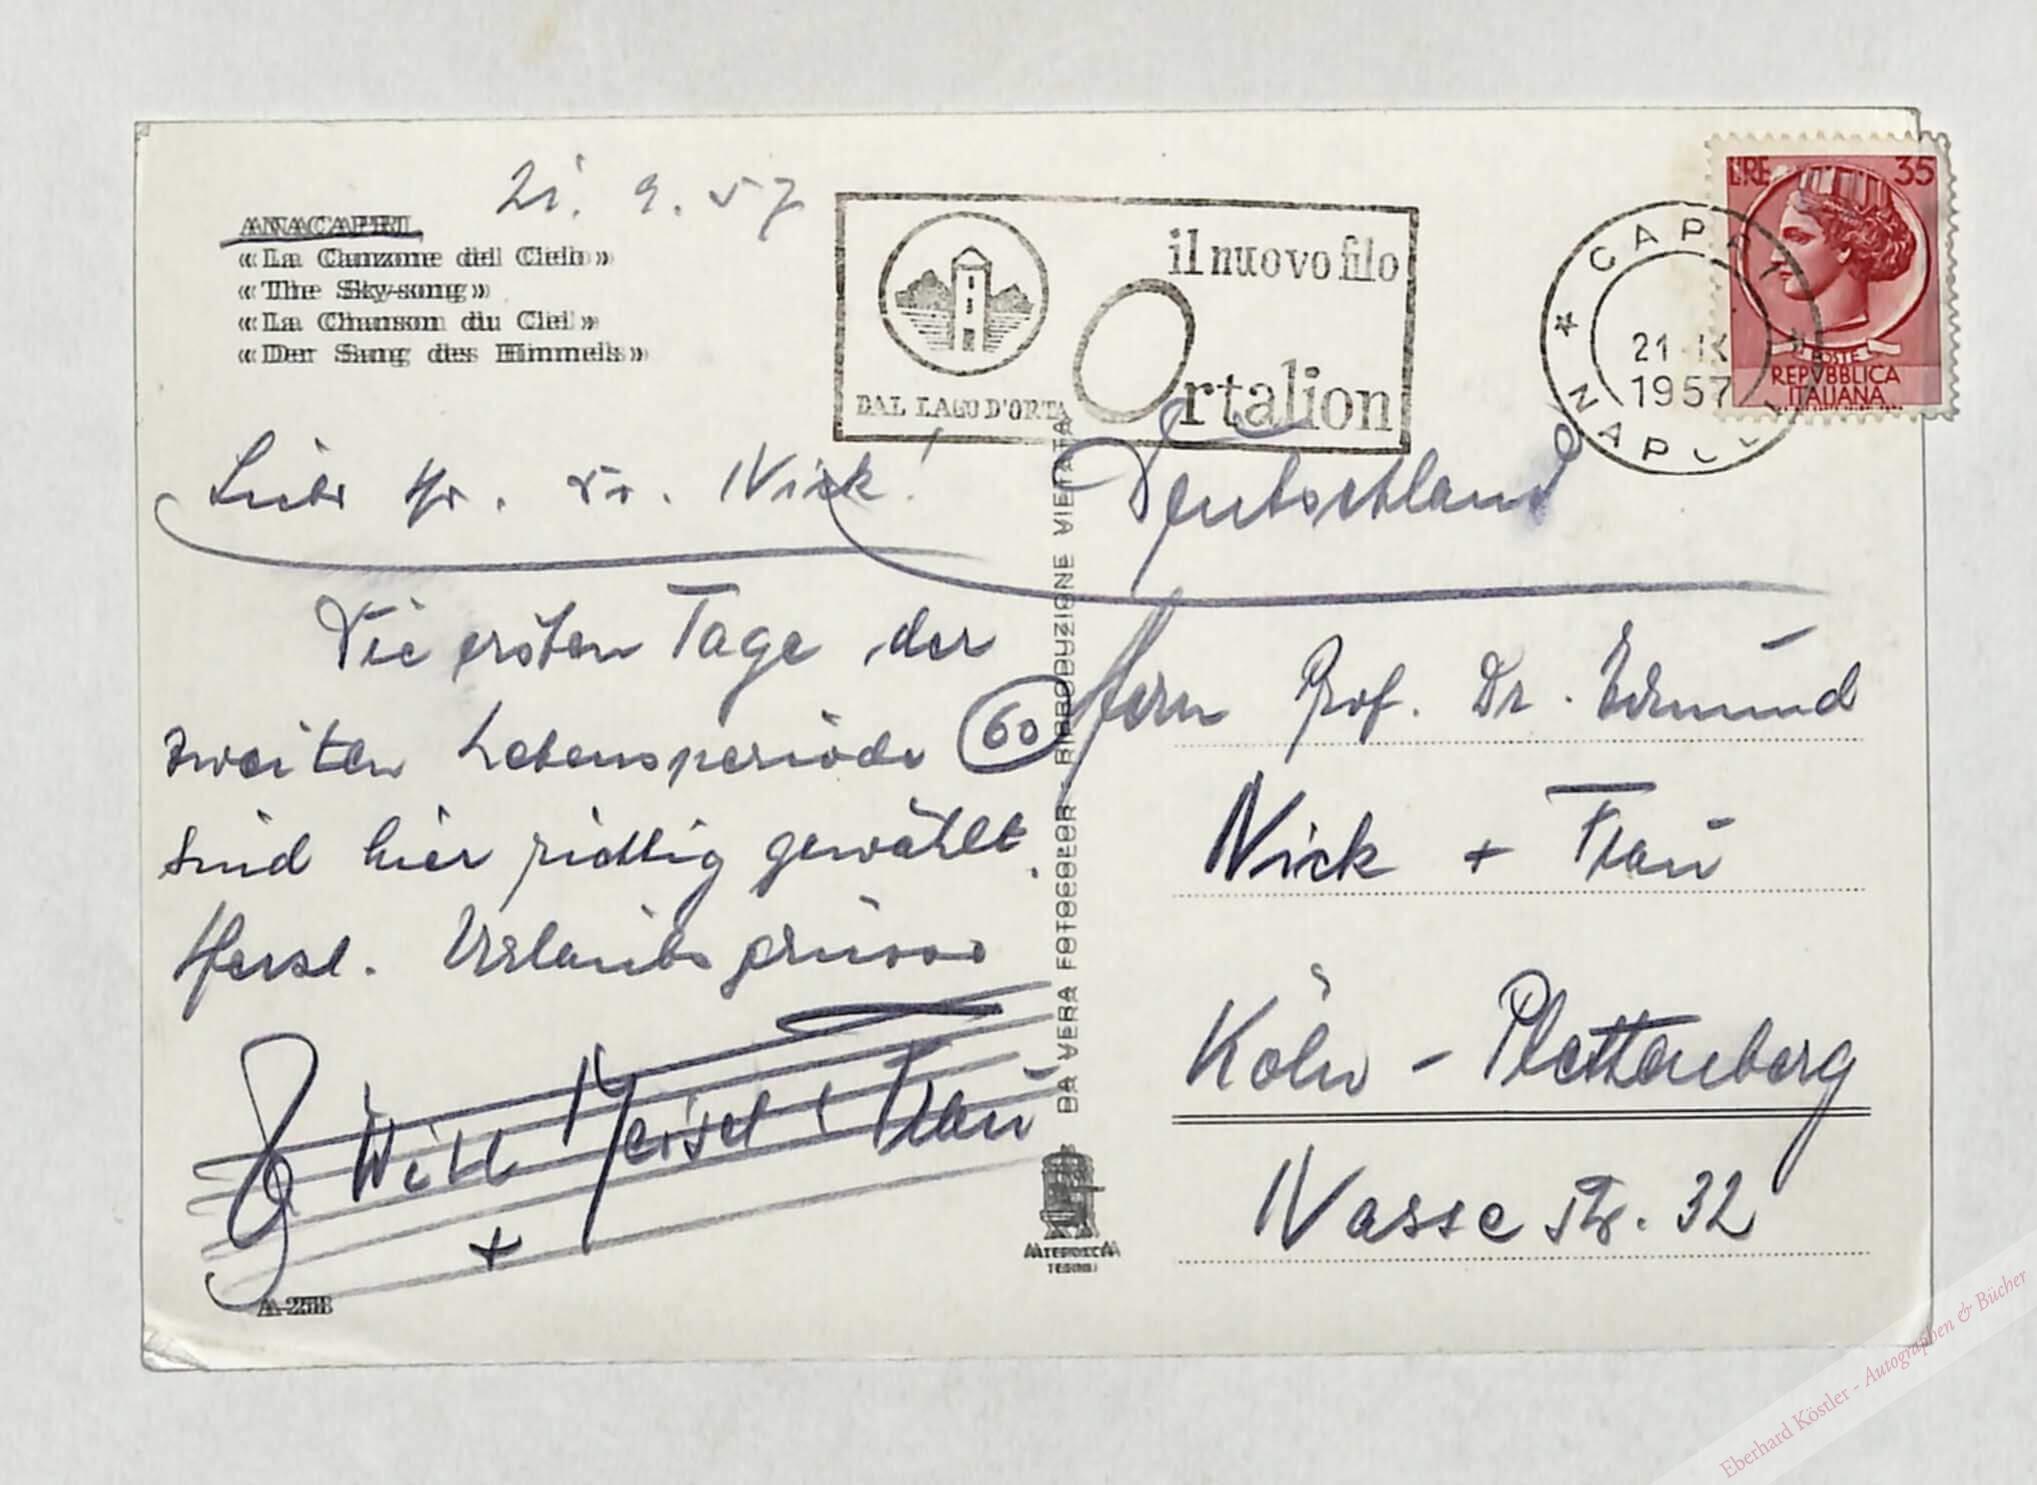 21. 9. 57
ANACAPRI
«La Canzone del Cielo»
«The Sky-song»
«La Chanson du Ciel»
«Der Sang des Himmels»
DAL LAGO D'ORTA
il nuovo filo
Ortalion
CAPRI
21 IX
1957
NAPOLI
LIRE 35
POSTE
REPVBBLICA
ITALIANA
Lieber Hr. Dr. Nick!
Die ersten Tage der
zweiten Lebensperiode (60)
sind hier richtig gewählt.
Herzl. Urlaubsgrüsse
Will Meisel + Frau
+
A-258
DA VERA FOTOCOLOR - RIPRODUZIONE VIETATA
TERNI
Deutschland
Herrn Prof. Dr. Edmund
Nick + Frau
Köln - Plettenberg
Nasse Str. 32
Eberhard Köstler - Autographen & Bücher